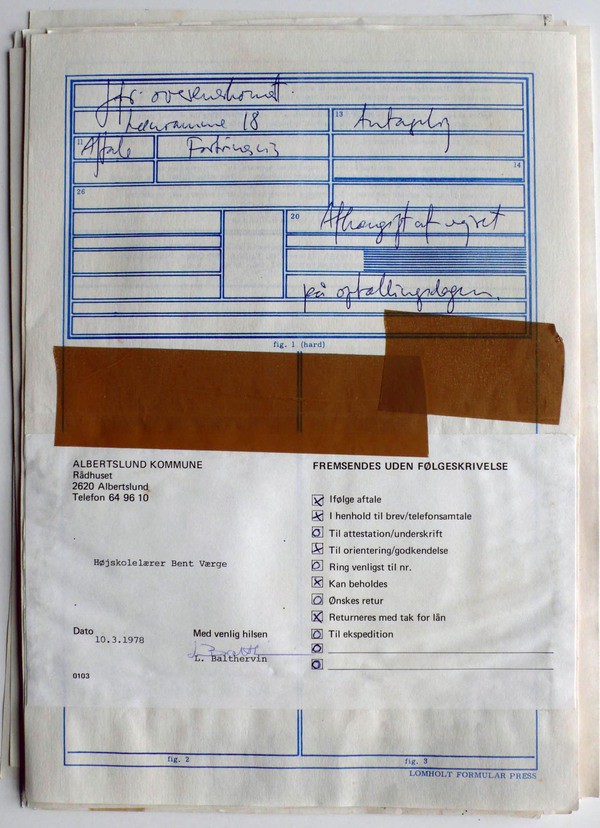 18
13
11
Aftale
14
26
20
Afhængigt af vejret
på optællingsdagen.
fig. 1 (hard)
ALBERTSLUND KOMMUNE
Rådhuset
2620 Albertslund
Telefon 64 96 10
Højskolelærer Bent Værge
Dato 10.3.1978
Med venlig hilsen
L. Balthervin
0103
FREMSENDES UDEN FØLGESKRIVELSE
Ifølge aftale
I henhold til brev/telefonsamtale
Til attestation/underskrift
Til orientering/godkendelse
Ring venligst til nr.
Kan beholdes
Ønskes retur
Returneres med tak for lån
Til ekspedition
fig. 2
fig. 3
LOMHOLT FORMULAR PRESS